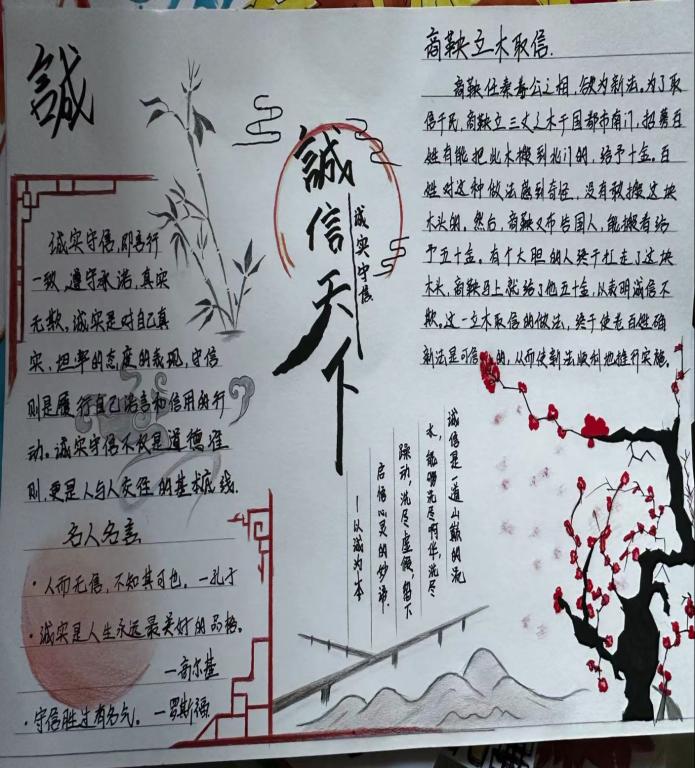 誠
诚实守信，即言行
一致、遵守承诺，真实
无欺。诚实是对自己真
实、坦率的态度的表现，守信
则是履行自己诺言和信用的行
动。诚实守信不仅是道德准
则，更是人与人交往的基本底线．
名人名言
·人而无信，不知其可也。—孔子
·诚实是人生永远最美好的品格。
—高尔基
·守信胜过有名气。—罗斯福
誠信天下
诚实守信
商鞅立木取信．
商鞅任秦孝公之相，欲为新法。为了取
信于民，商鞅立三丈之木于国都市南门，招募百
姓有能把此木搬到北门的，给予十金。百
姓对这种做法感到奇怪，没有敢搬这块
木头的。然后，商鞅又布告国人，能搬者给
予五十金。有个大胆的人终于扛走了这块
木头，商鞅马上就给了他五十金，以表明诚信不
欺。这一立木取信的做法，终于使老百姓确
新法是可信的，从而使新法顺利地推行实施。
诚信是一道山巅的流
水，能够洗尽浮华，洗尽
躁动，洗尽虚假，留下
启悟心灵的妙谛．
—以诚为本